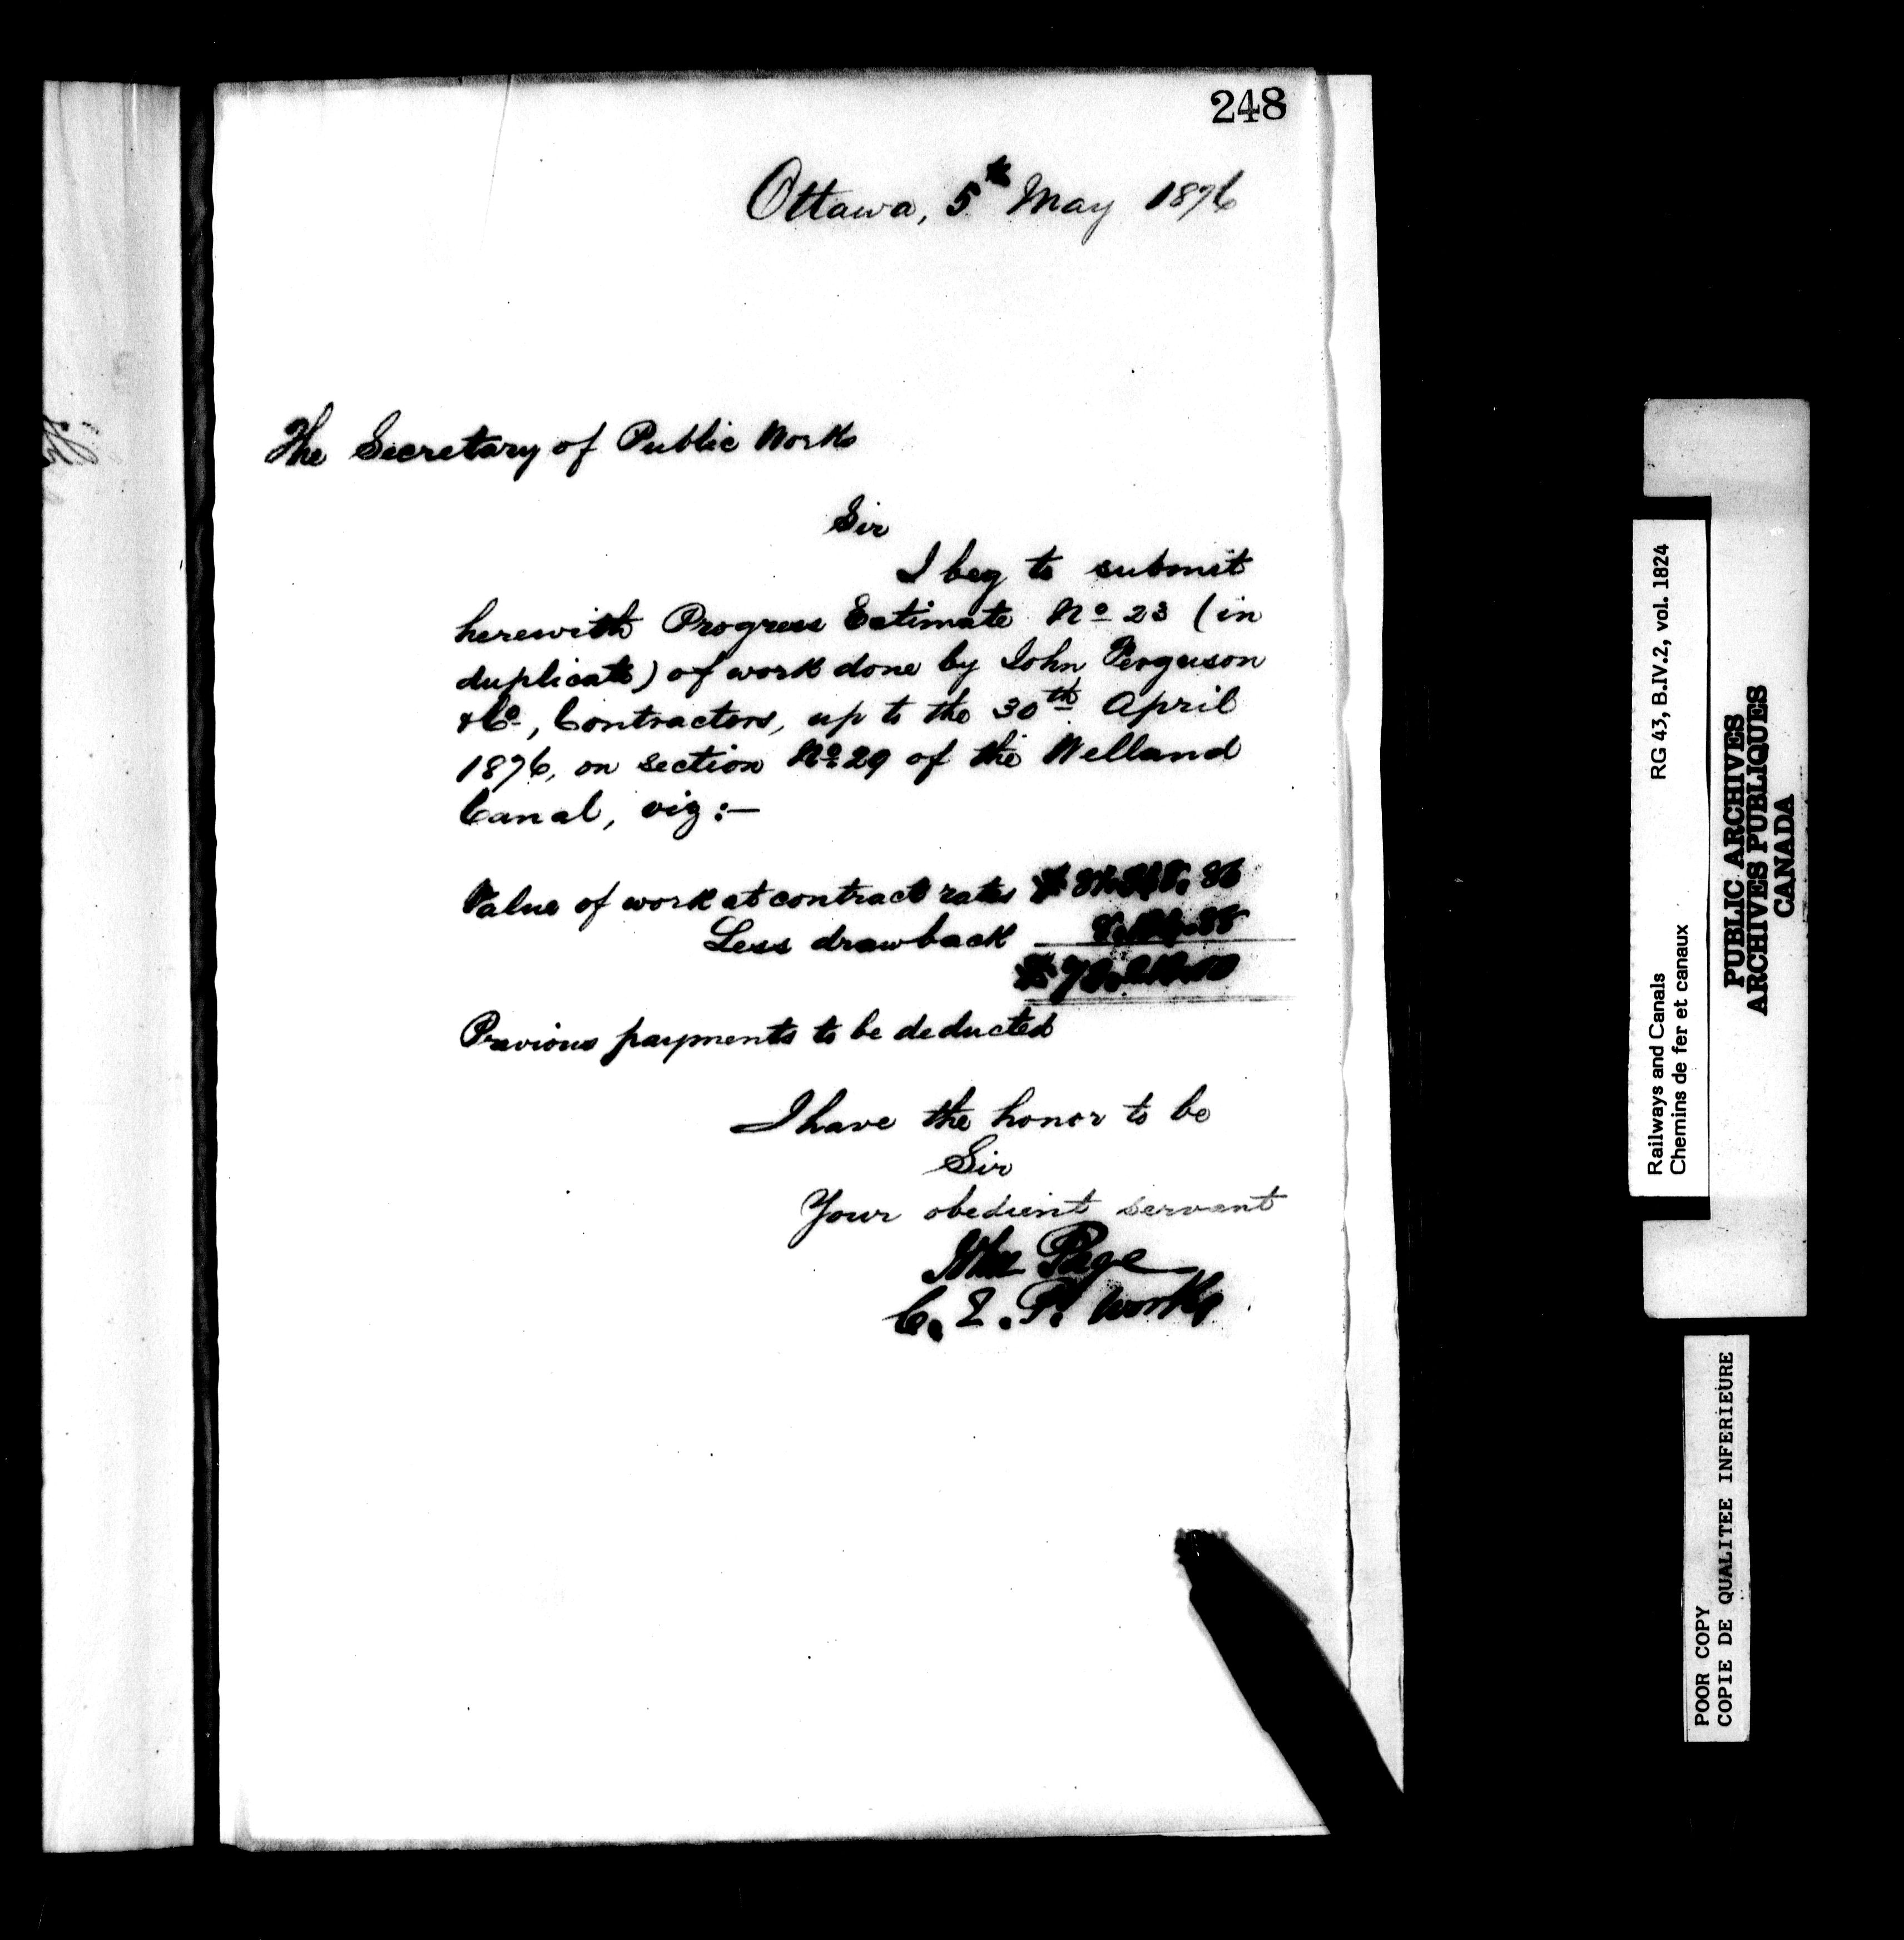 248
Ottawa, 5th May 1876
The Secretary of Public Works
Sir
I beg to submit
herewith Progress Estimate No 23 (in
duplicate) of work done by John Ferguson
& Co, Contractors, up to the 30th April
1876, on section No 29 of the Welland
Canal, viz:—
Value of work at contract rates $
Less drawback
$
Previous payments to be deducted
I have the honor to be
Sir
Your obedient servant
John Page
C.E.P. Works
Railways and Canals RG 43, B.IV.2, vol. 1824
Chemins de fer et canaux
PUBLIC ARCHIVES
ARCHIVES PUBLIQUES
CANADA
POOR COPY
COPIE DE QUALITEE INFERIEURE